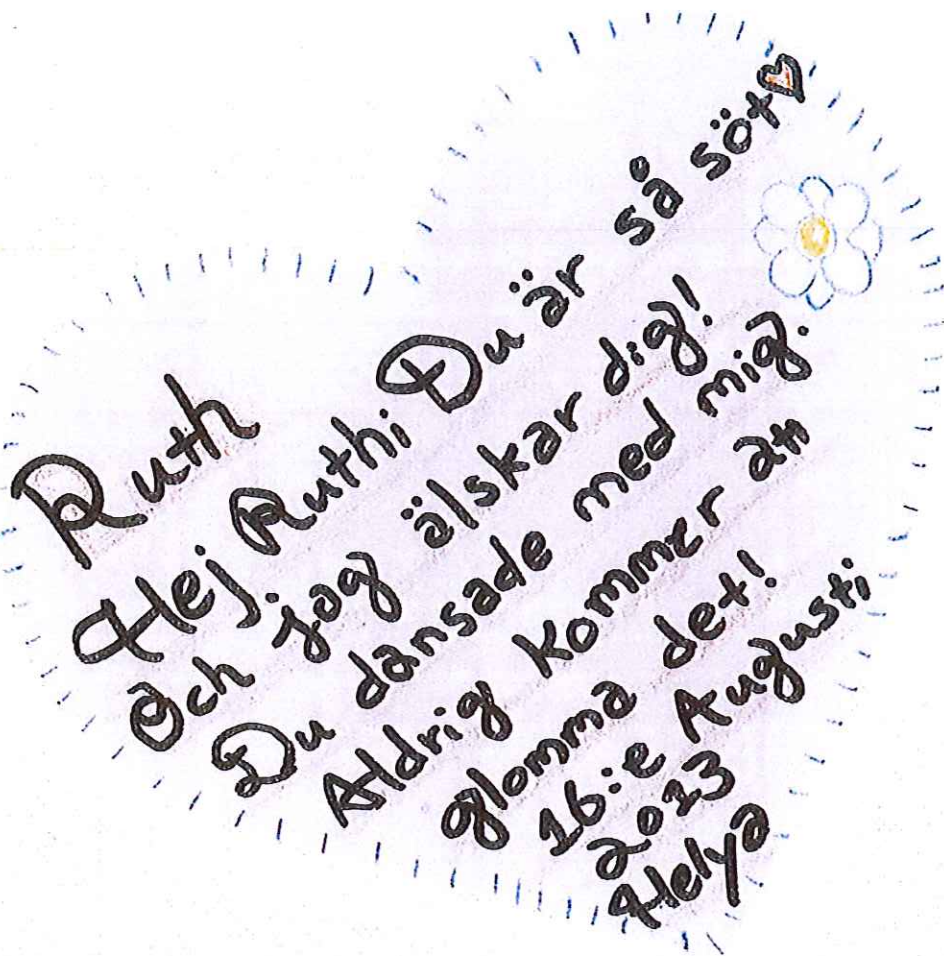 Ruth
Hej Ruth; Du är så söt♡
Och jag älskar dig!
Du dansade med mig.
Aldrig kommer att
glomma det!
16:e Augusti
2023
Helya